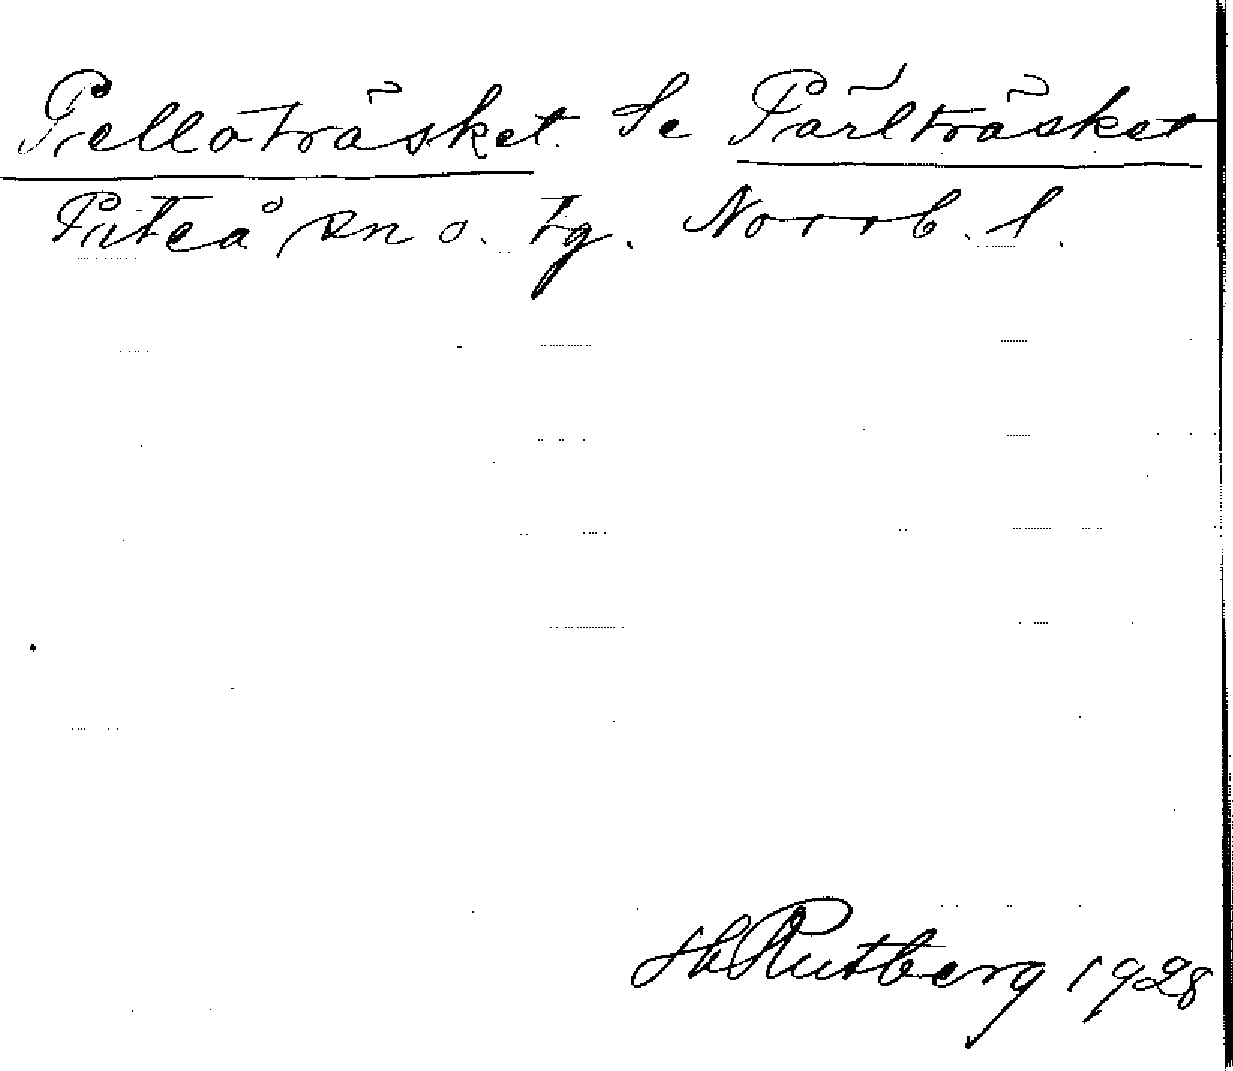 Pelloträsket. Se Pärlträsket
Piteå sn o. tg. Norrb. l.
Hb Rutberg 1928